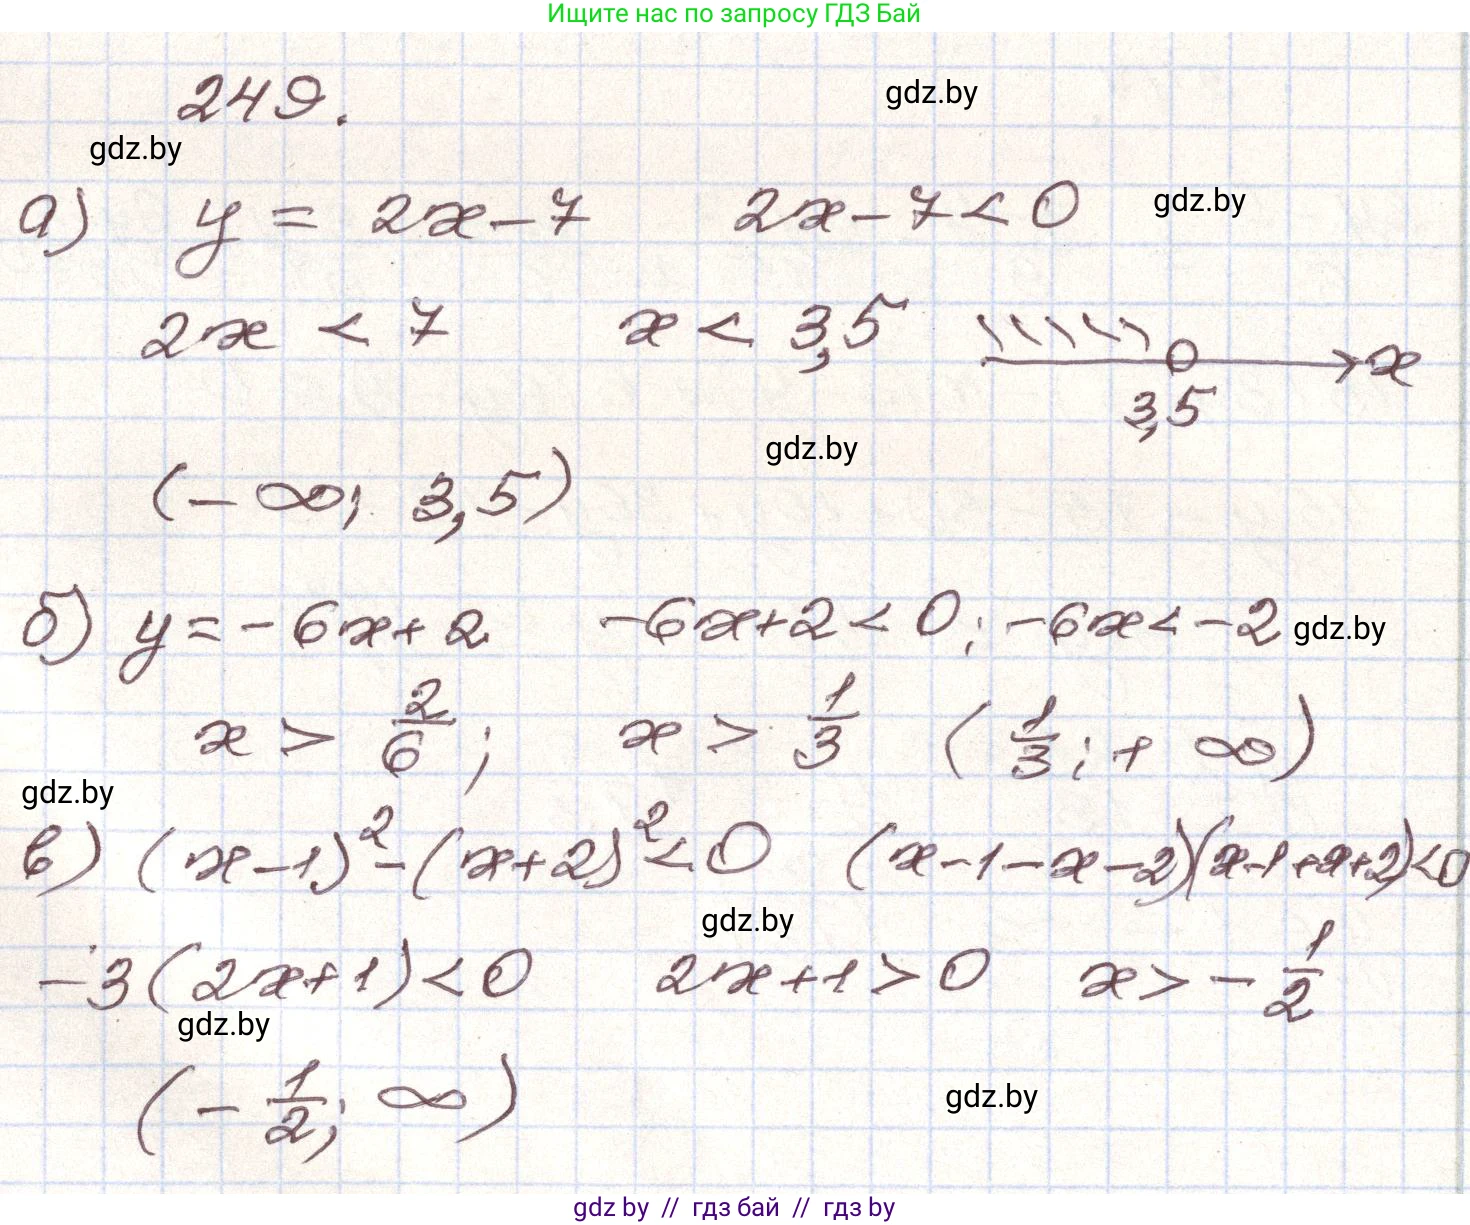 Ищите нас по запросу ГДЗ Бай
249.
gdz.by
gdz.by
а) y = 2x - 7 2x - 7 < 0 gdz.by
2x < 7 x < 3,5 x
3,5
gdz.by
(- ∞; 3,5)
б) y = - 6x + 2 -6x + 2 < 0; -6x < -2 gdz.by
x > 2/6; x > 1/3 (1/3; + ∞)
gdz.by
в) (x - 1)² - (x + 2)² < 0 (x - 1 - x - 2)(x - 1 + x + 2) < 0
gdz.by
-3(2x + 1) < 0 2x + 1 > 0 x > - 1/2
gdz.by
(- 1/2; ∞)
gdz.by
gdz by // гдз бай // гдз by